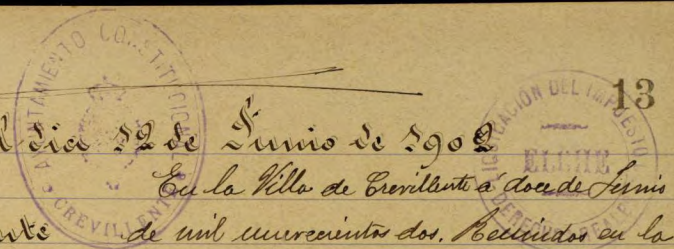 AYUNTAMIENTO CONSTITUCIONAL
CREVILLENTE
LIQUIDACIÓN DEL IMPUESTO
ELCHE
DERECHOS REALES
13
l dia 12 de Junio de 1902
En la Villa de Crevillente a doce de Junio
nte de mil novecientos dos. Reunidos en la